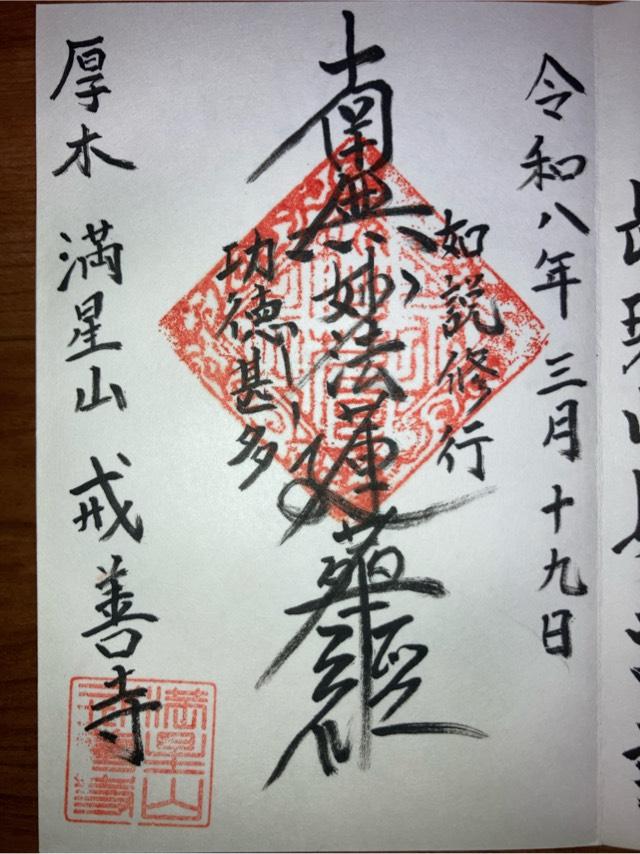 令和八年 三月十九日
如説修行
南無妙法蓮華経
功徳甚多
厚木 満星山 戒善寺
満星山
戒善寺